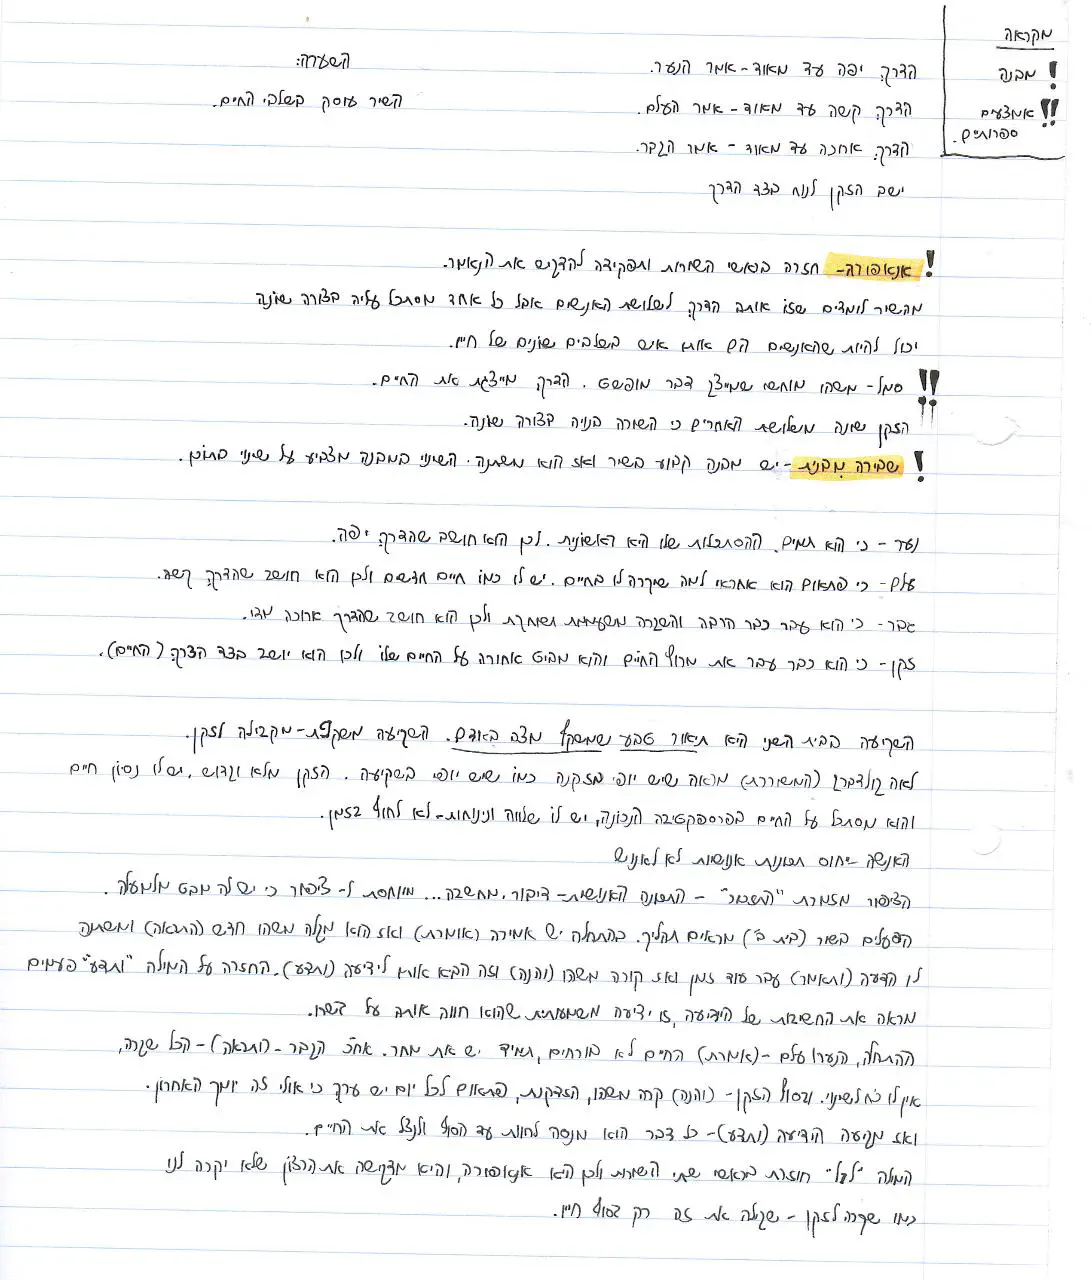 מקראה
! מבנה
!! אמצעים
ספרותיים.
השערה:
השיר עוסק בשלבי החיים.
הדרך יפה עד מאוד - אמר הנער.
הדרך קשה עד מאוד - אמר העלם.
הדרך ארוכה עד מאוד - אמר הגבר.
ישב הזקן לנוח בצד הדרך
! אנאפורה - חזרה בראשי השורות ותפקידה להדגיש את הנאמר.
מהשיר לומדים שזו אותה הדרך לשלושת האנשים אבל כל אחד מסתכל עליה בצורה שונה
יכול להיות שהאנשים הם אותו איש בשלבים שונים של חייו.
!! סמל - משהו מוחשי שמייצג דבר מופשט. הדרך מייצגת את החיים.
הזקן שונה משלושת האחרים כי השורה בנויה בצורה שונה.
! שבירה מבנית - יש מבנה קבוע בשיר ואז הוא משתנה. השינוי במבנה מצביע על שינוי בתוכן.
נער - כי הוא תמים. ההסתכלות שלו היא ראשונית. לכן הוא חושב שהדרך יפה.
עלם - כי פתאום הוא אחראי למה שיקרה לו בחיים. יש לו כמו חיים חדשים ולכן הוא חושב שהדרך קשה.
גבר - כי הוא עבר כבר הרבה והשגרה משעממת ושוחקת ולכן הוא חושב שהדרך ארוכה מדי.
זקן - כי הוא כבר עבר את מרוץ החיים והוא מביט אחורה על החיים שלו ולכן הוא יושב בצד הדרך (החיים).
השקיעה בבית השני היא תיאור טבע שמשקף מצב באדם. השקיעה משקפת - מקבילה לזקן.
לאה גולדברג (המשוררת) מראה שיש יופי בזקנה כמו שיש יופי בשקיעה. הזקן מלא וגדוש, יש לו נסיון חיים
והוא מסתכל על החיים בפרספקטיבה הנכונה, יש לו שלווה ונינוחות - לא לחוץ בזמן.
האנשה - ייחוס תכונות אנושיות ללא אנושי
הציפור מזמרת "התזכור" - התכונה האנושית - דיבור, מחשבה... מיוחסת ל-ציפור כי יש לה מבט מלמעלה.
הפעלים בשיר (בית ב') מראים תהליך. בהתחלה יש אמירה (אומרת) ואז הוא מגלה משהו חדש (התראה) ומשתנה
לו הדעה (ותאמר) עבר עוד זמן ואז קורה משהו (והנה) וזה הביא אותו לידיעה (ותדע). החזרה על המילה "ותדע" פעמים
מראה את החשיבות של הידיעה, זו ידיעה משמעותית שהוא חווה אותה על בשרו.
ההתחלה, הנער ועלם - (אומרת) החיים לא בורחים, תמיד יש את מחר. אח"כ הגבר - (ותראה) - הכל שגרה,
אין לו כח לשינוי. ובסוף הזקן - (והנה) קרה משהו, הזדקנת, פתאום לכל יום יש ערך כי אולי זה יומך האחרון.
ואז מגיעה הידיעה (ותדע) - כל דבר הוא מנסה לחוות עד הסוף ולנצל את החיים.
המילה "לבל" חוזרת בראשי שתי השורות ולכן היא אנאפורה, והיא מדגישה את הרצון שלא יקרה לנו
כמו שקרה לזקן - שגילה את זה רק בסוף חייו.